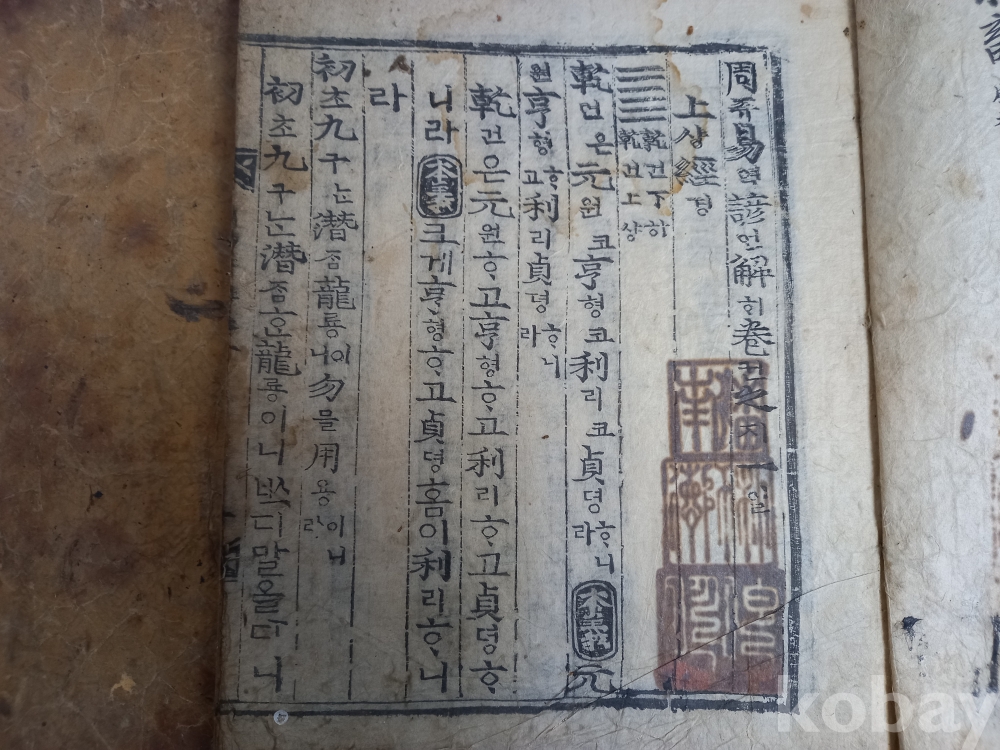 周쥬易역諺언解ᄒᆡ卷권之지一일
上샹經경
䷀乾건下하乾건上샹
乾건은元원코亨형코利리코貞뎡ᄒᆞ니라本義元
원亨형ᄒᆞ고利리貞뎡ᄒᆞ니라
乾건은元원ᄒᆞ고亨형ᄒᆞ고利리ᄒᆞ고貞뎡ᄒᆞ
니라本義크게亨형ᄒᆞ고貞뎡홈이利리ᄒᆞ니
라
初초九구ᄂᆞᆫ潛ᄌᆞᆷ龍룡이니勿믈用용이니라
初초九구ᄂᆞᆫ潛ᄌᆞᆷᄒᆞᆫ龍룡이니ᄡᅳ디말을띠니
kobay